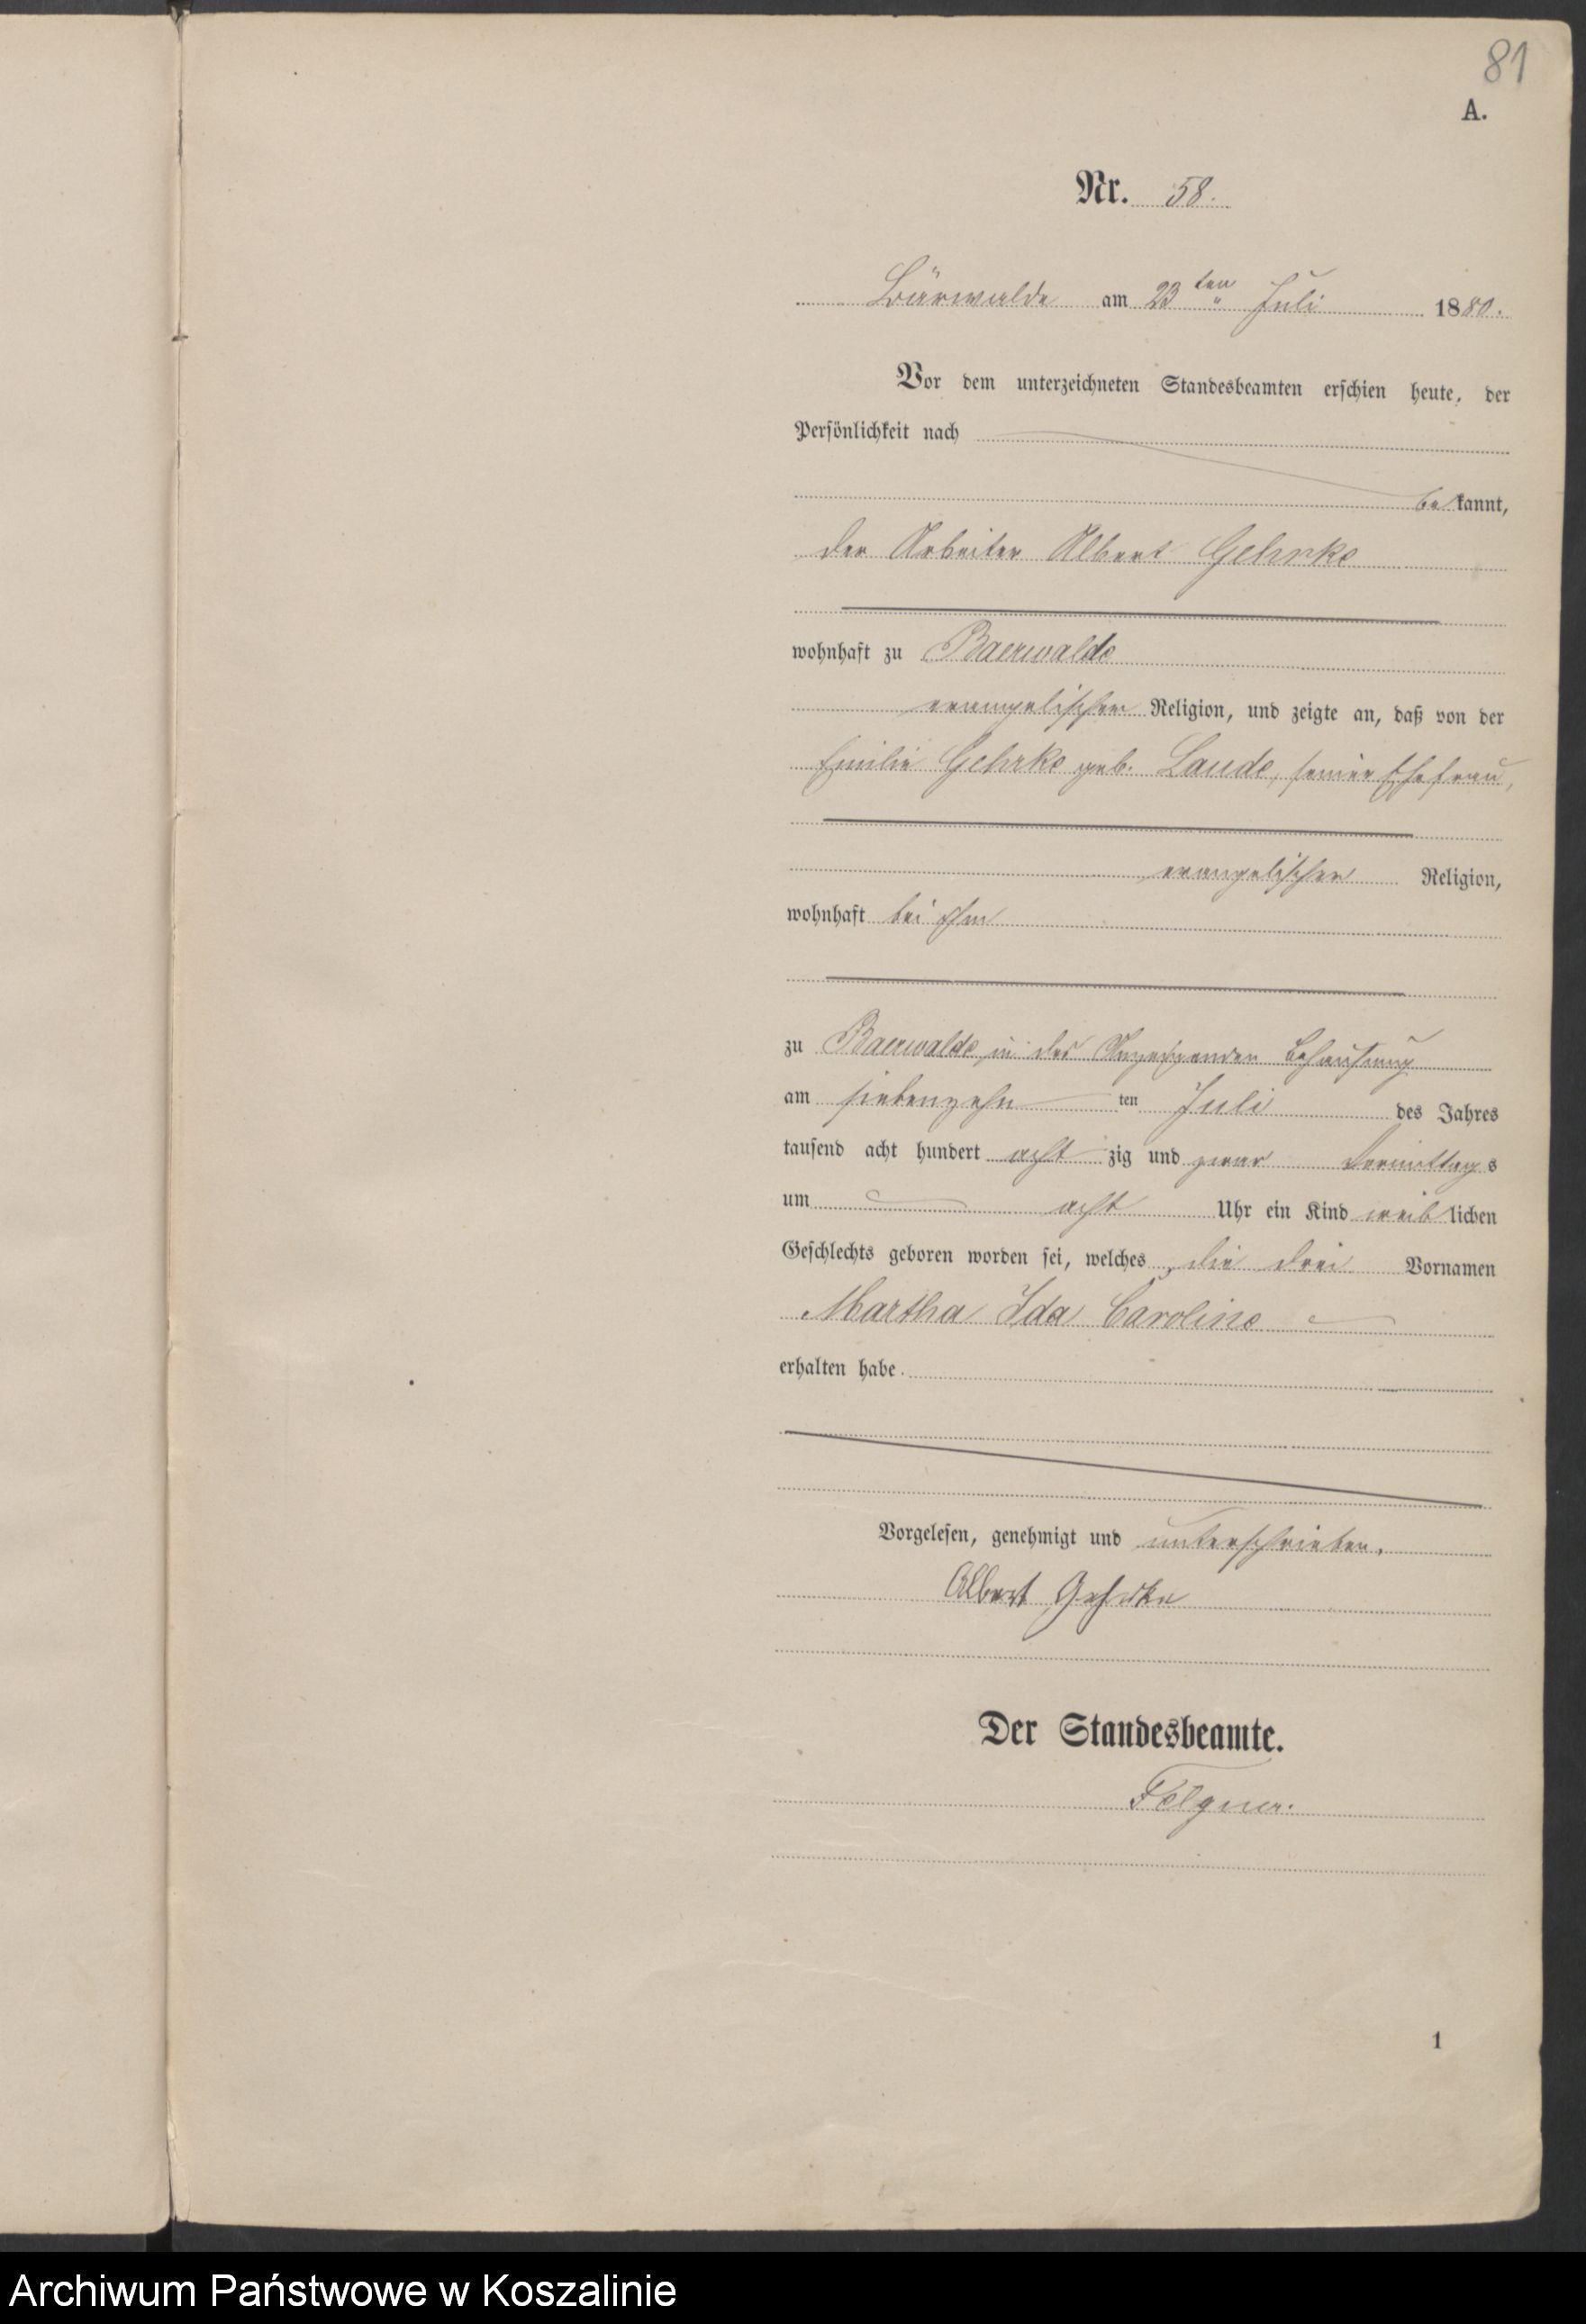 81
A.
Nr. 58.
Bärwalde am 23ten Juli 1880.
Vor dem unterzeichneten Standesbeamten erschien heute, der
Persönlichkeit nach
bekannt,
der Arbeiter Albert Gehrke
wohnhaft zu Baerwalde
evangelischer Religion, und zeigte an, daß von der
Emilie Gehrke geb. Laude, seiner Ehefrau,
evangelischer Religion,
wohnhaft bei ihm
zu Baerwalde in des Anzeigenden Behausung
am siebenzehn ten Juli des Jahres
tausend acht hundert acht zig und zwar Vormittags
um acht Uhr ein Kind weiblichen
Geschlechts geboren worden sei, welches die drei Vornamen
Martha Ida Caroline
erhalten habe.
Vorgelesen, genehmigt und unterschrieben.
Albert Gehrke
Der Standesbeamte.
Felgner.
1
Archiwum Państwowe w Koszalinie